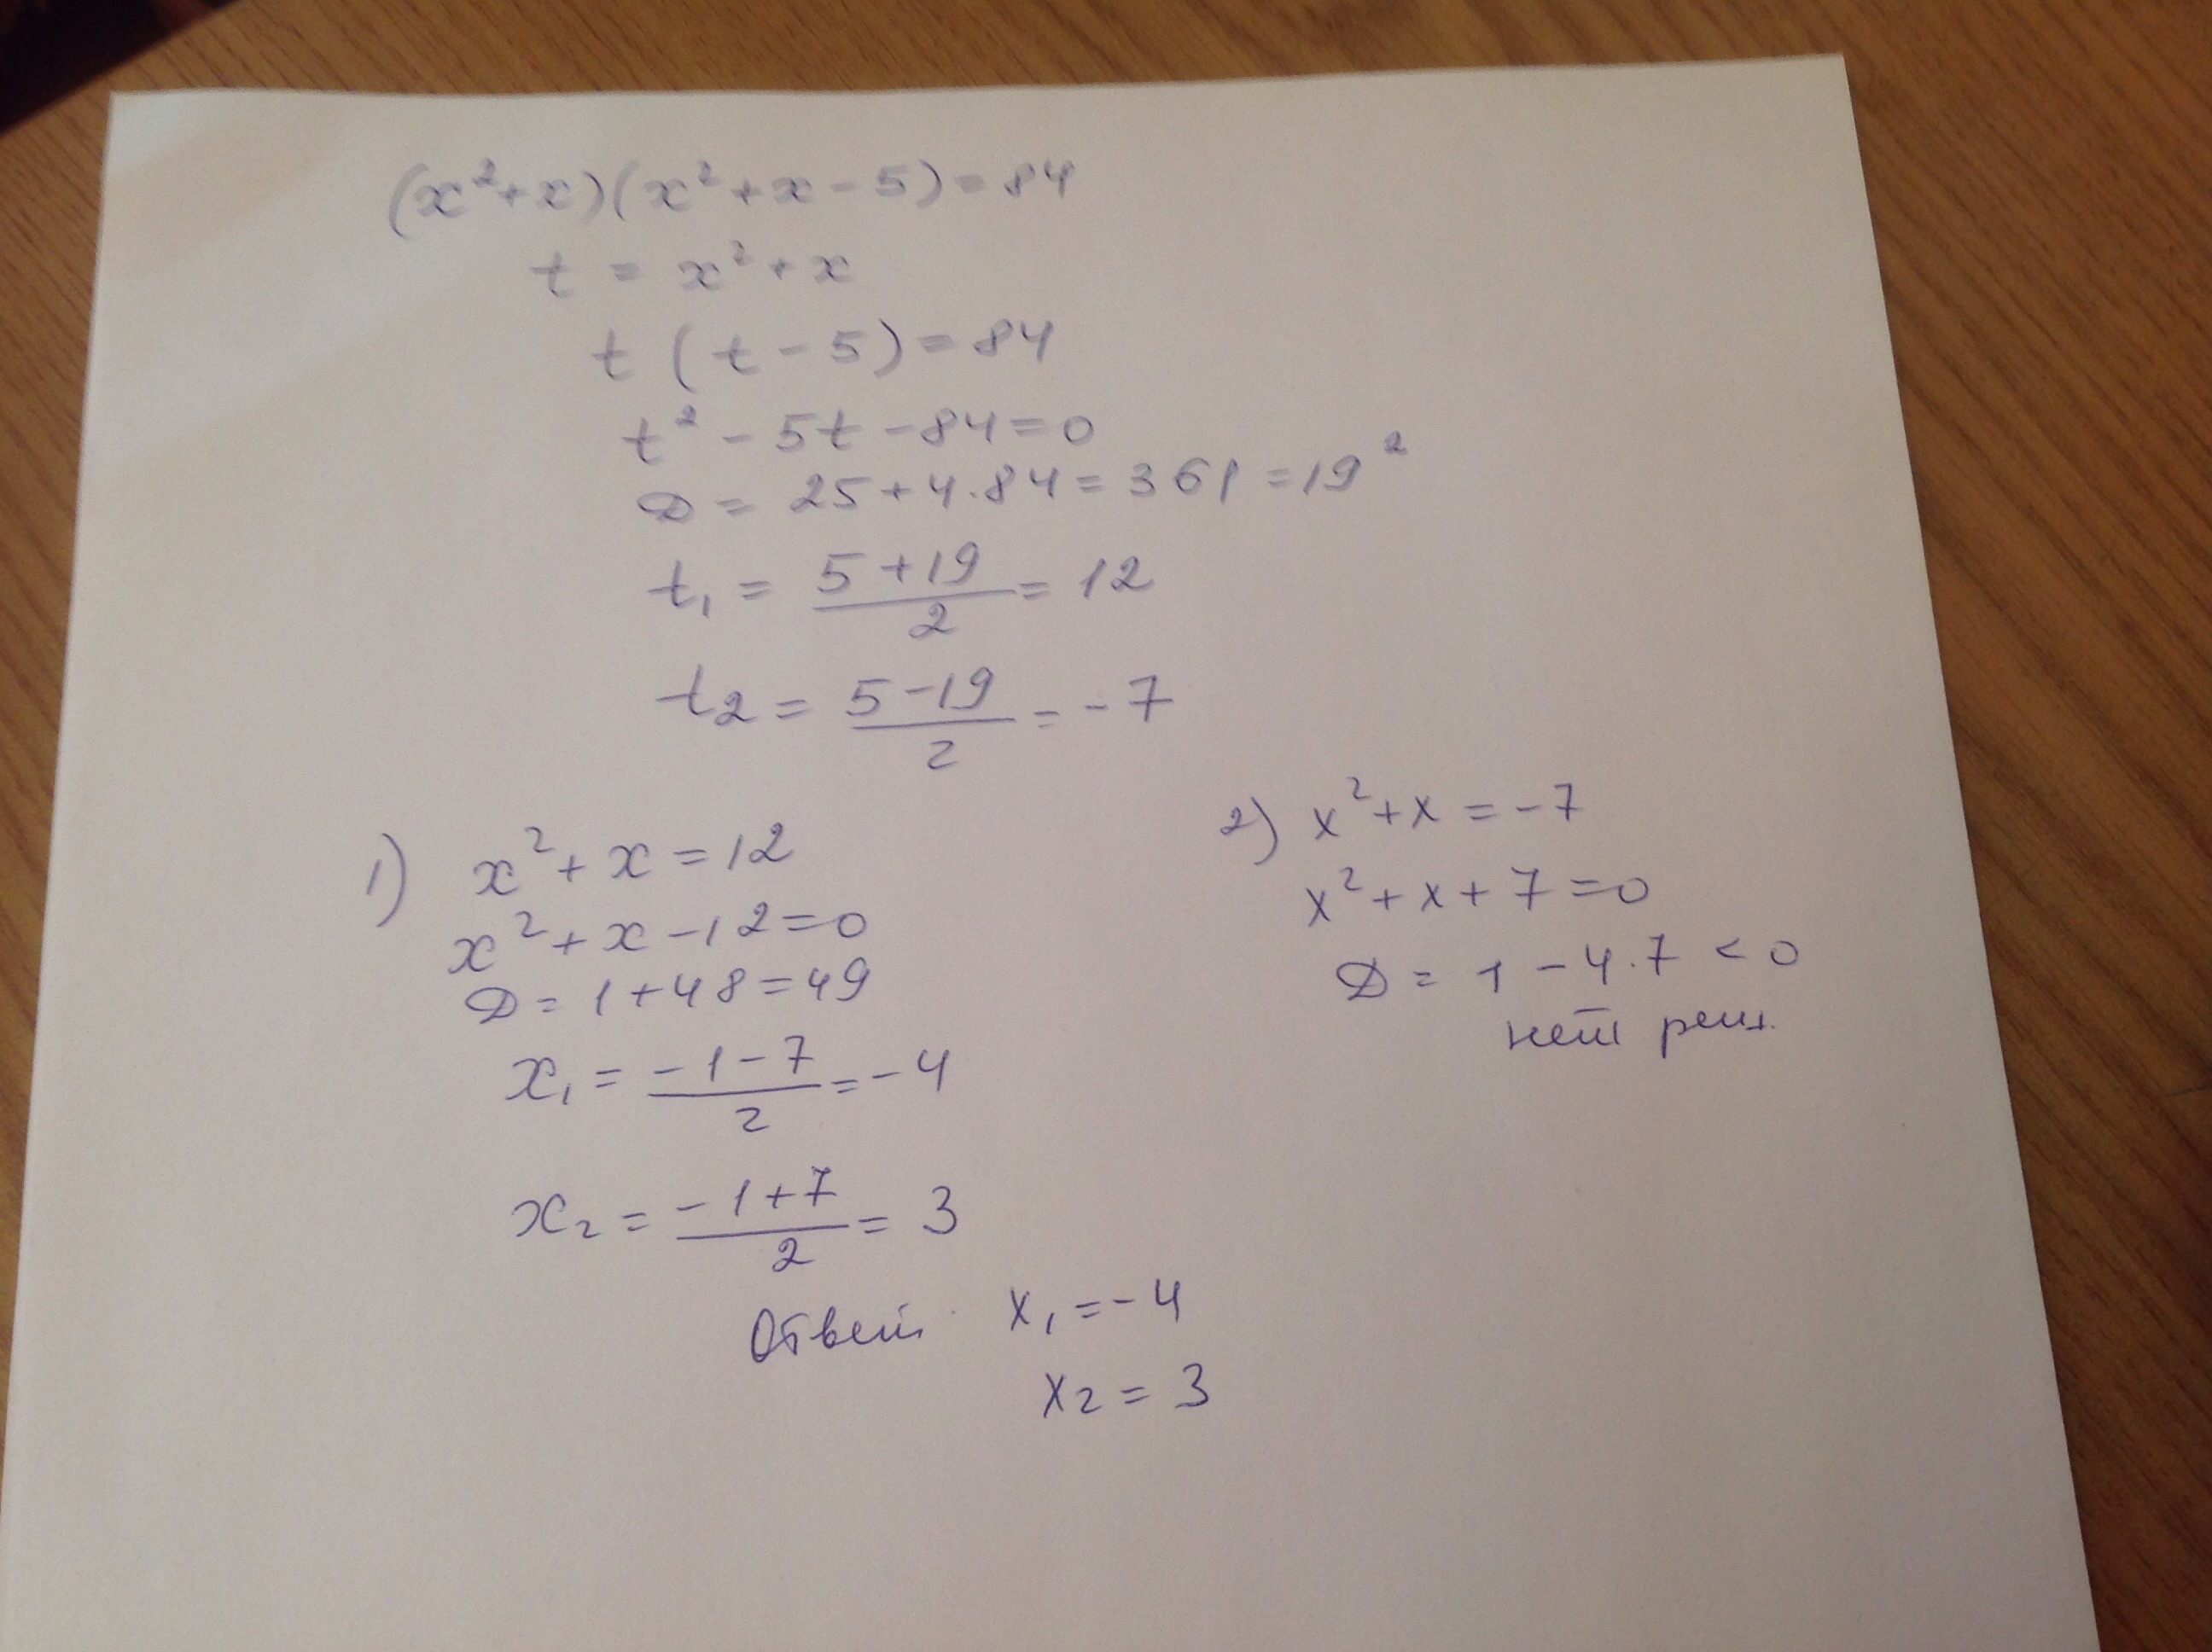 (x²+x)(x²+x-5)=84
t = x²+x
t(t-5)=84
t²-5t-84=0
D = 25+4·84=361=19²
t₁ = (5+19)/2 = 12
t₂ = (5-19)/2 = -7
1) x²+x=12
x²+x-12=0
D=1+48=49
x₁ = (-1-7)/2 = -4
x₂ = (-1+7)/2 = 3
2) x²+x=-7
x²+x+7=0
D = 1-4·7 < 0
нет реш.
Ответ x₁=-4
x₂=3